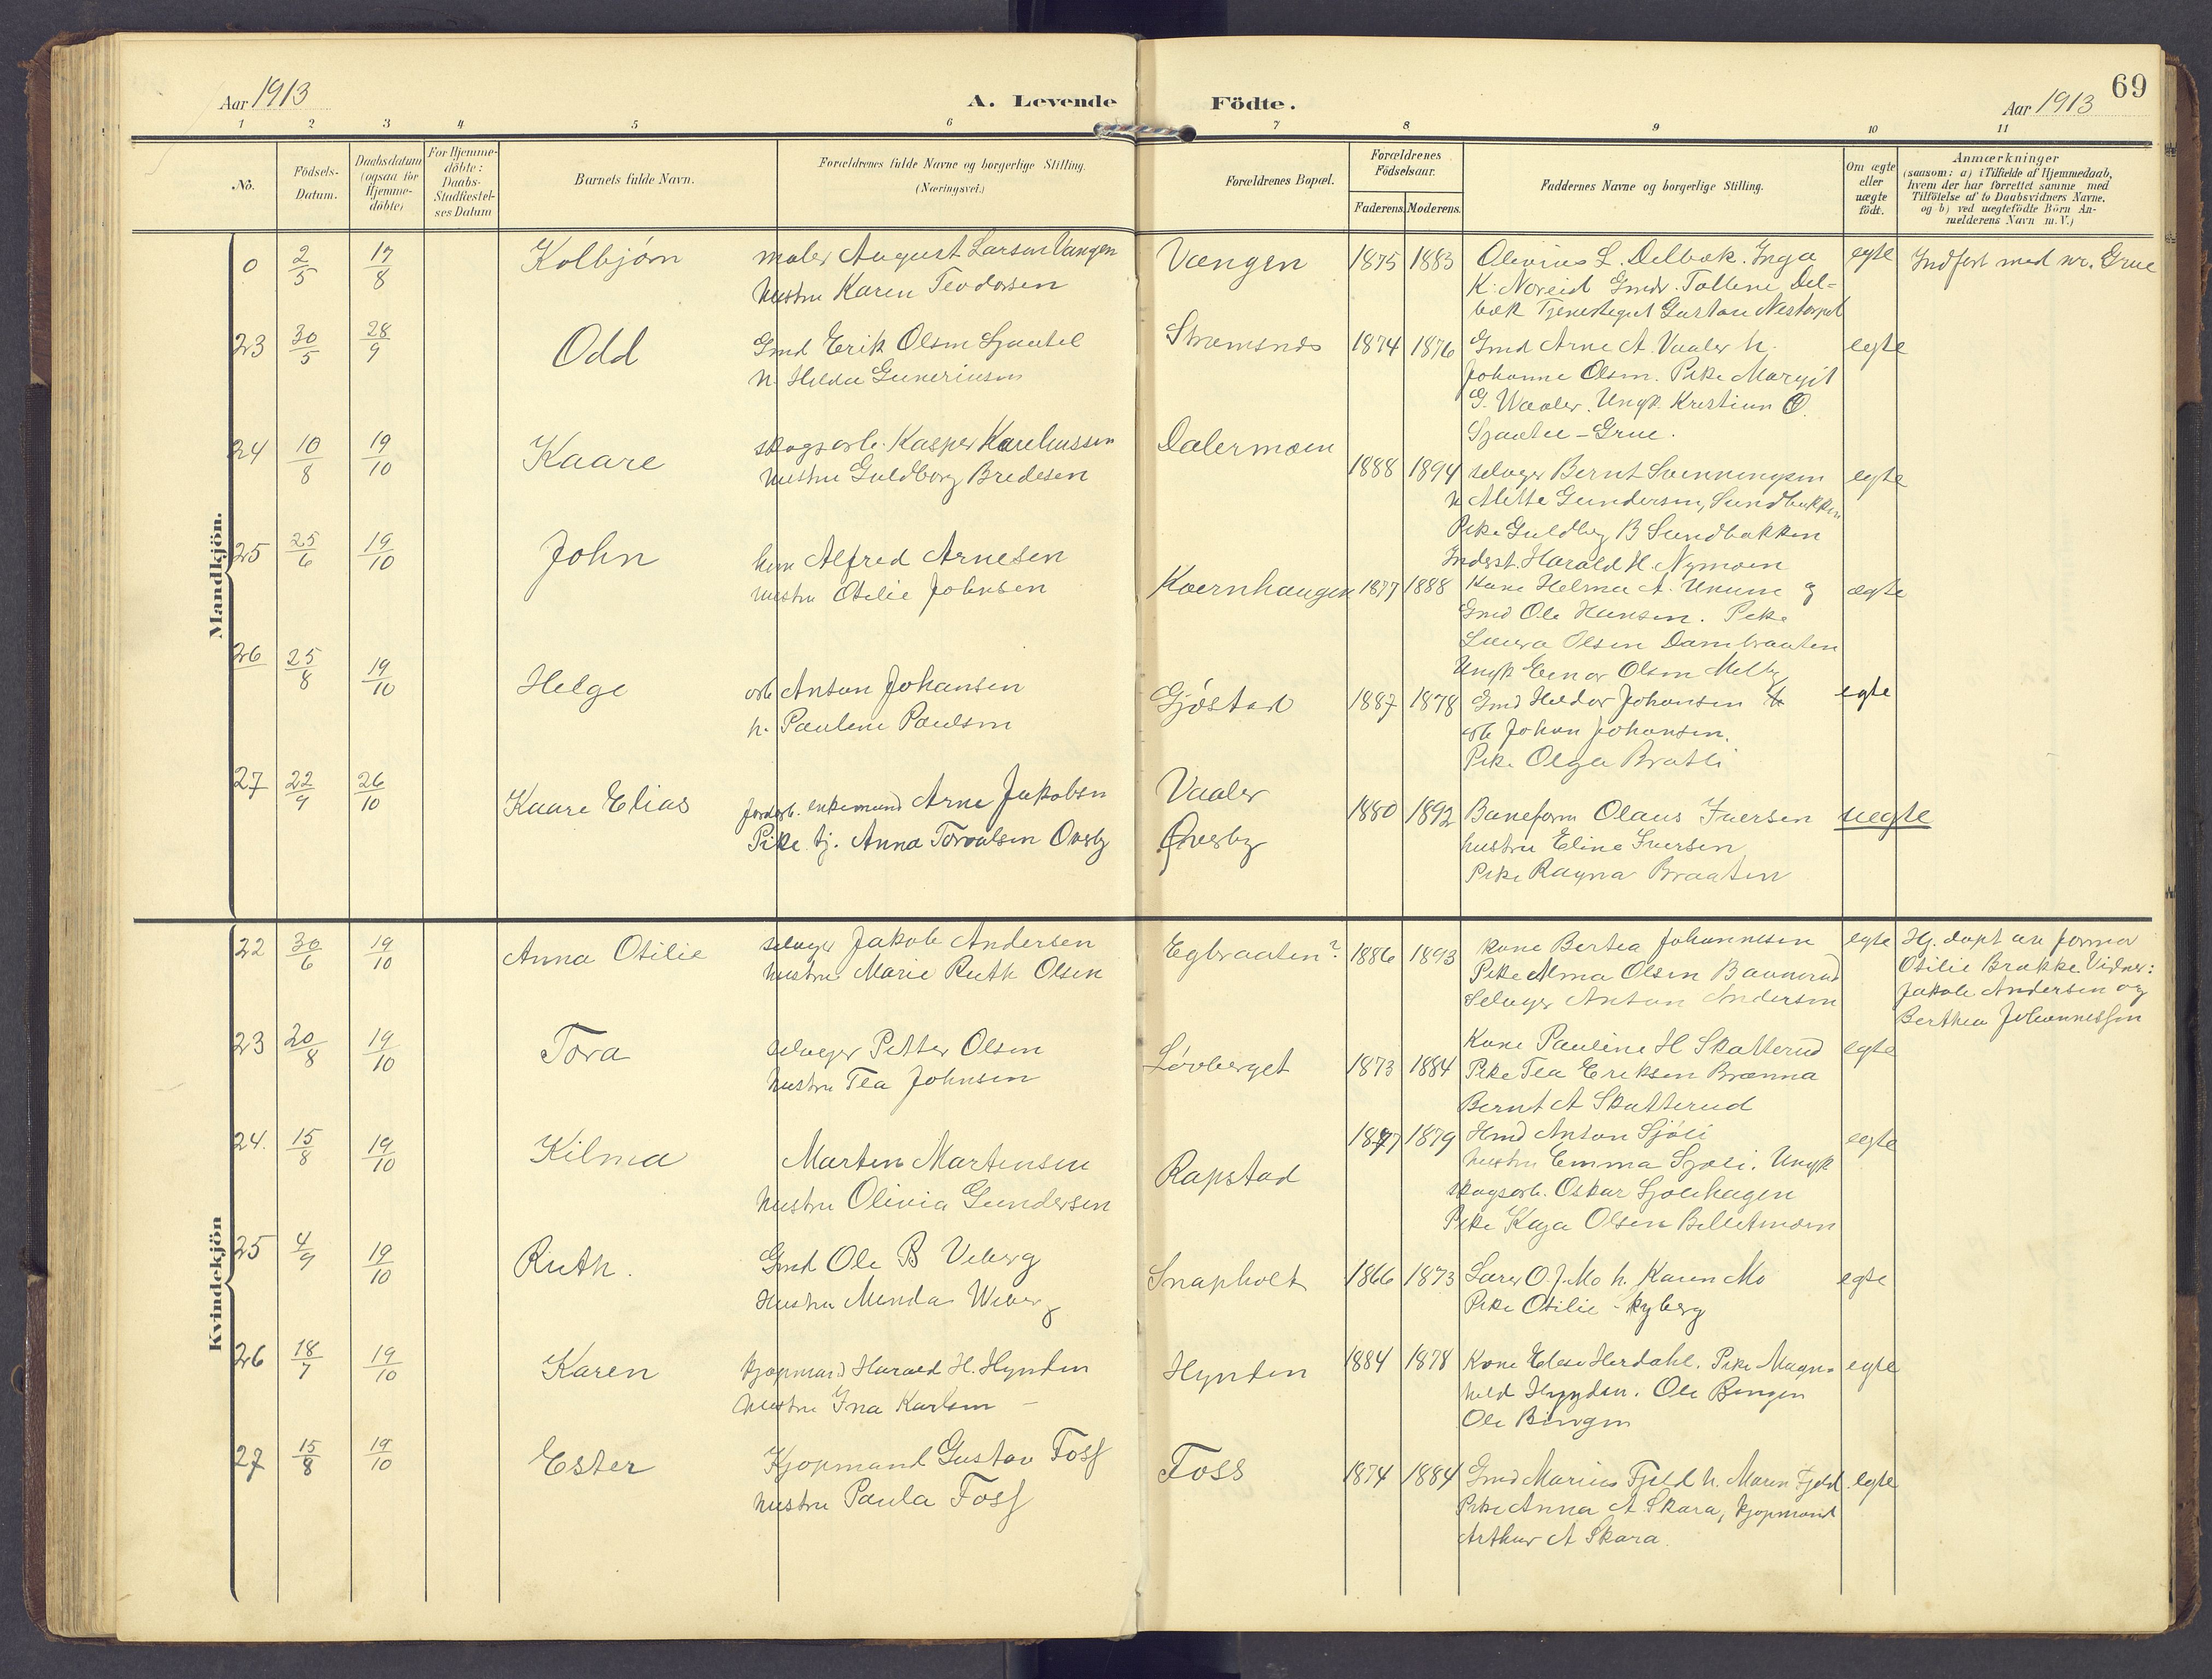 Aar 1913
A. Levende Födte.
Aar 1913
69
1 2 3 4 5 6 7 8 9 10 11
No.
Födsels-Datum.
Daabsdatum (ogsaa for Hjemme-döbte)
For Hjemme-döbte: Daabs-Stadfæstel-ses Datum
Barnets fulde Navn.
Forældrenes fulde Navne og borgerlige Stilling.
(Næringsvei.)
Forældrenes Bopæl.
Forældrenes Födselsaar.
Faderens. Moderens.
Faddernes Navne og borgerlige Stilling.
Om ægte eller uægte födt.
Anmærkninger
(saasom: a) i Tilfælde af Hjemmedaab,
hvem der har forrettet samme med
Tilföielse af to Daabsvidners Navne,
og b) ved uægtefödte Börn An-
melderens Navn m. V.)
Mandkjön.
0 2/5 17/8 Kolbjörn
maler August Larsen Vangen
hustru Karen Teodorsen
Vangen 1875 1883
Olivius L. Delbæk. Inga
K. Noreid Gmdr. Tolline Del-
bæk Tjenestegut Gustav
egte
Indført med nr. Grue
23 30/5 28/9 Odd
Gmd Erik Olsen
h. Hilda Guneriusen
Strømsnes 1874 1876
Gmd Arne A. Vaaler h.
Johanne Olsen. Pike Margit
G. Waaler. Ungk. Kristian O.
- Grue.
egte
24 10/8 19/10 Kaare
skogsarb. Kasper Kareliussen
hustru Guldborg Bredesen
Dalermoen 1888 1894
selveger Bernt Svenningsen
h Mette Gundersen, Sundbakken
Pike Guldbg B Sundbakken
Inderst. Harald H. Nymoen
egte
25 25/6 19/10 John
Alfred Arnesen
hustru Otilie Johnsen
Kværnhaugen 1877 1888
Kone Helma A. og
Gmd Ole Hansen. Pike
Laura Olsen Dambraaten
Ungk Einar Olsen Melby
ægte
26 25/8 19/10 Helge
arb Anton Johansen
h. Pauline Paulsen
Gjøstad 1887 1878
Gmd Haldor Johansen
arb Johan Johansen.
Pike Olga Bratli
egte
27 22/9 26/10 Kaare Elias
jordarb. enkemand Arne Jakobsen
Pike tj. Anna Torvalsen Overby
Vaaler
Overby
1880 1892
Baneform Olaus Iversen
hustru Eline Iversen
Pike Ragna Braaten
uegte
Kvindekjön
22 30/6 19/10 Anna Otilie
selveger Jakob Andersen
hustru Marie Ruth Olsen
Egbraaten? 1886 1893
kone Bertea Johannesen
Pike Alma Olsen Baunerud
Selveger Anton Andersen
egte
Hj. døpt av jormor
Otilie Brække Vidner:
Jakob Andersen og
Berthea Johannessen
23 20/8 19/10 Tora
selveger Petter Olsen
hustru Tea Johnsen
Løvberget 1873 1884
Kone Pauline H Skatterud
Pike Tea Eriksen Brænna
Bernt A Skatterud
egte
24. 15/8 19/10 Kilma
Marten Martinsen
hustru Olivia Gundersen
Rapstad 1877 1879
Hmd Anton Sjöli
hustru Emma Sjøli. Ungk
skogsarb. Oskar Sjølihagen
Pike Kaja Olsen Billetmoen
egte
25 4/9 19/10 Ruth.
Gmd Ole B Viberg
Hustru Menda Wiberg
Snapholt 1866 1873
Lærer O. J. Mo h. Karen Mo
Pike Otilie Nyberg
egte
26 18/7 19/10 Karen
kjøpmand Harald H. Hynden
hustru Ina Karlsen -
Hynden 1884 1878
Kone Elise Herdahl. Pike Magn-
hild Hynden. Ole Bingen
Ole Bingen
egte
27 15/8 19/10 Ester
Kjøpmand Gustav Foss
hustru Paula Foss
Foss 1874 1884
Gmd Marius Fjeld h. Maren Fjeld
Pike Anna A Skara, kjøpmand
Arthur A Skara.
egte